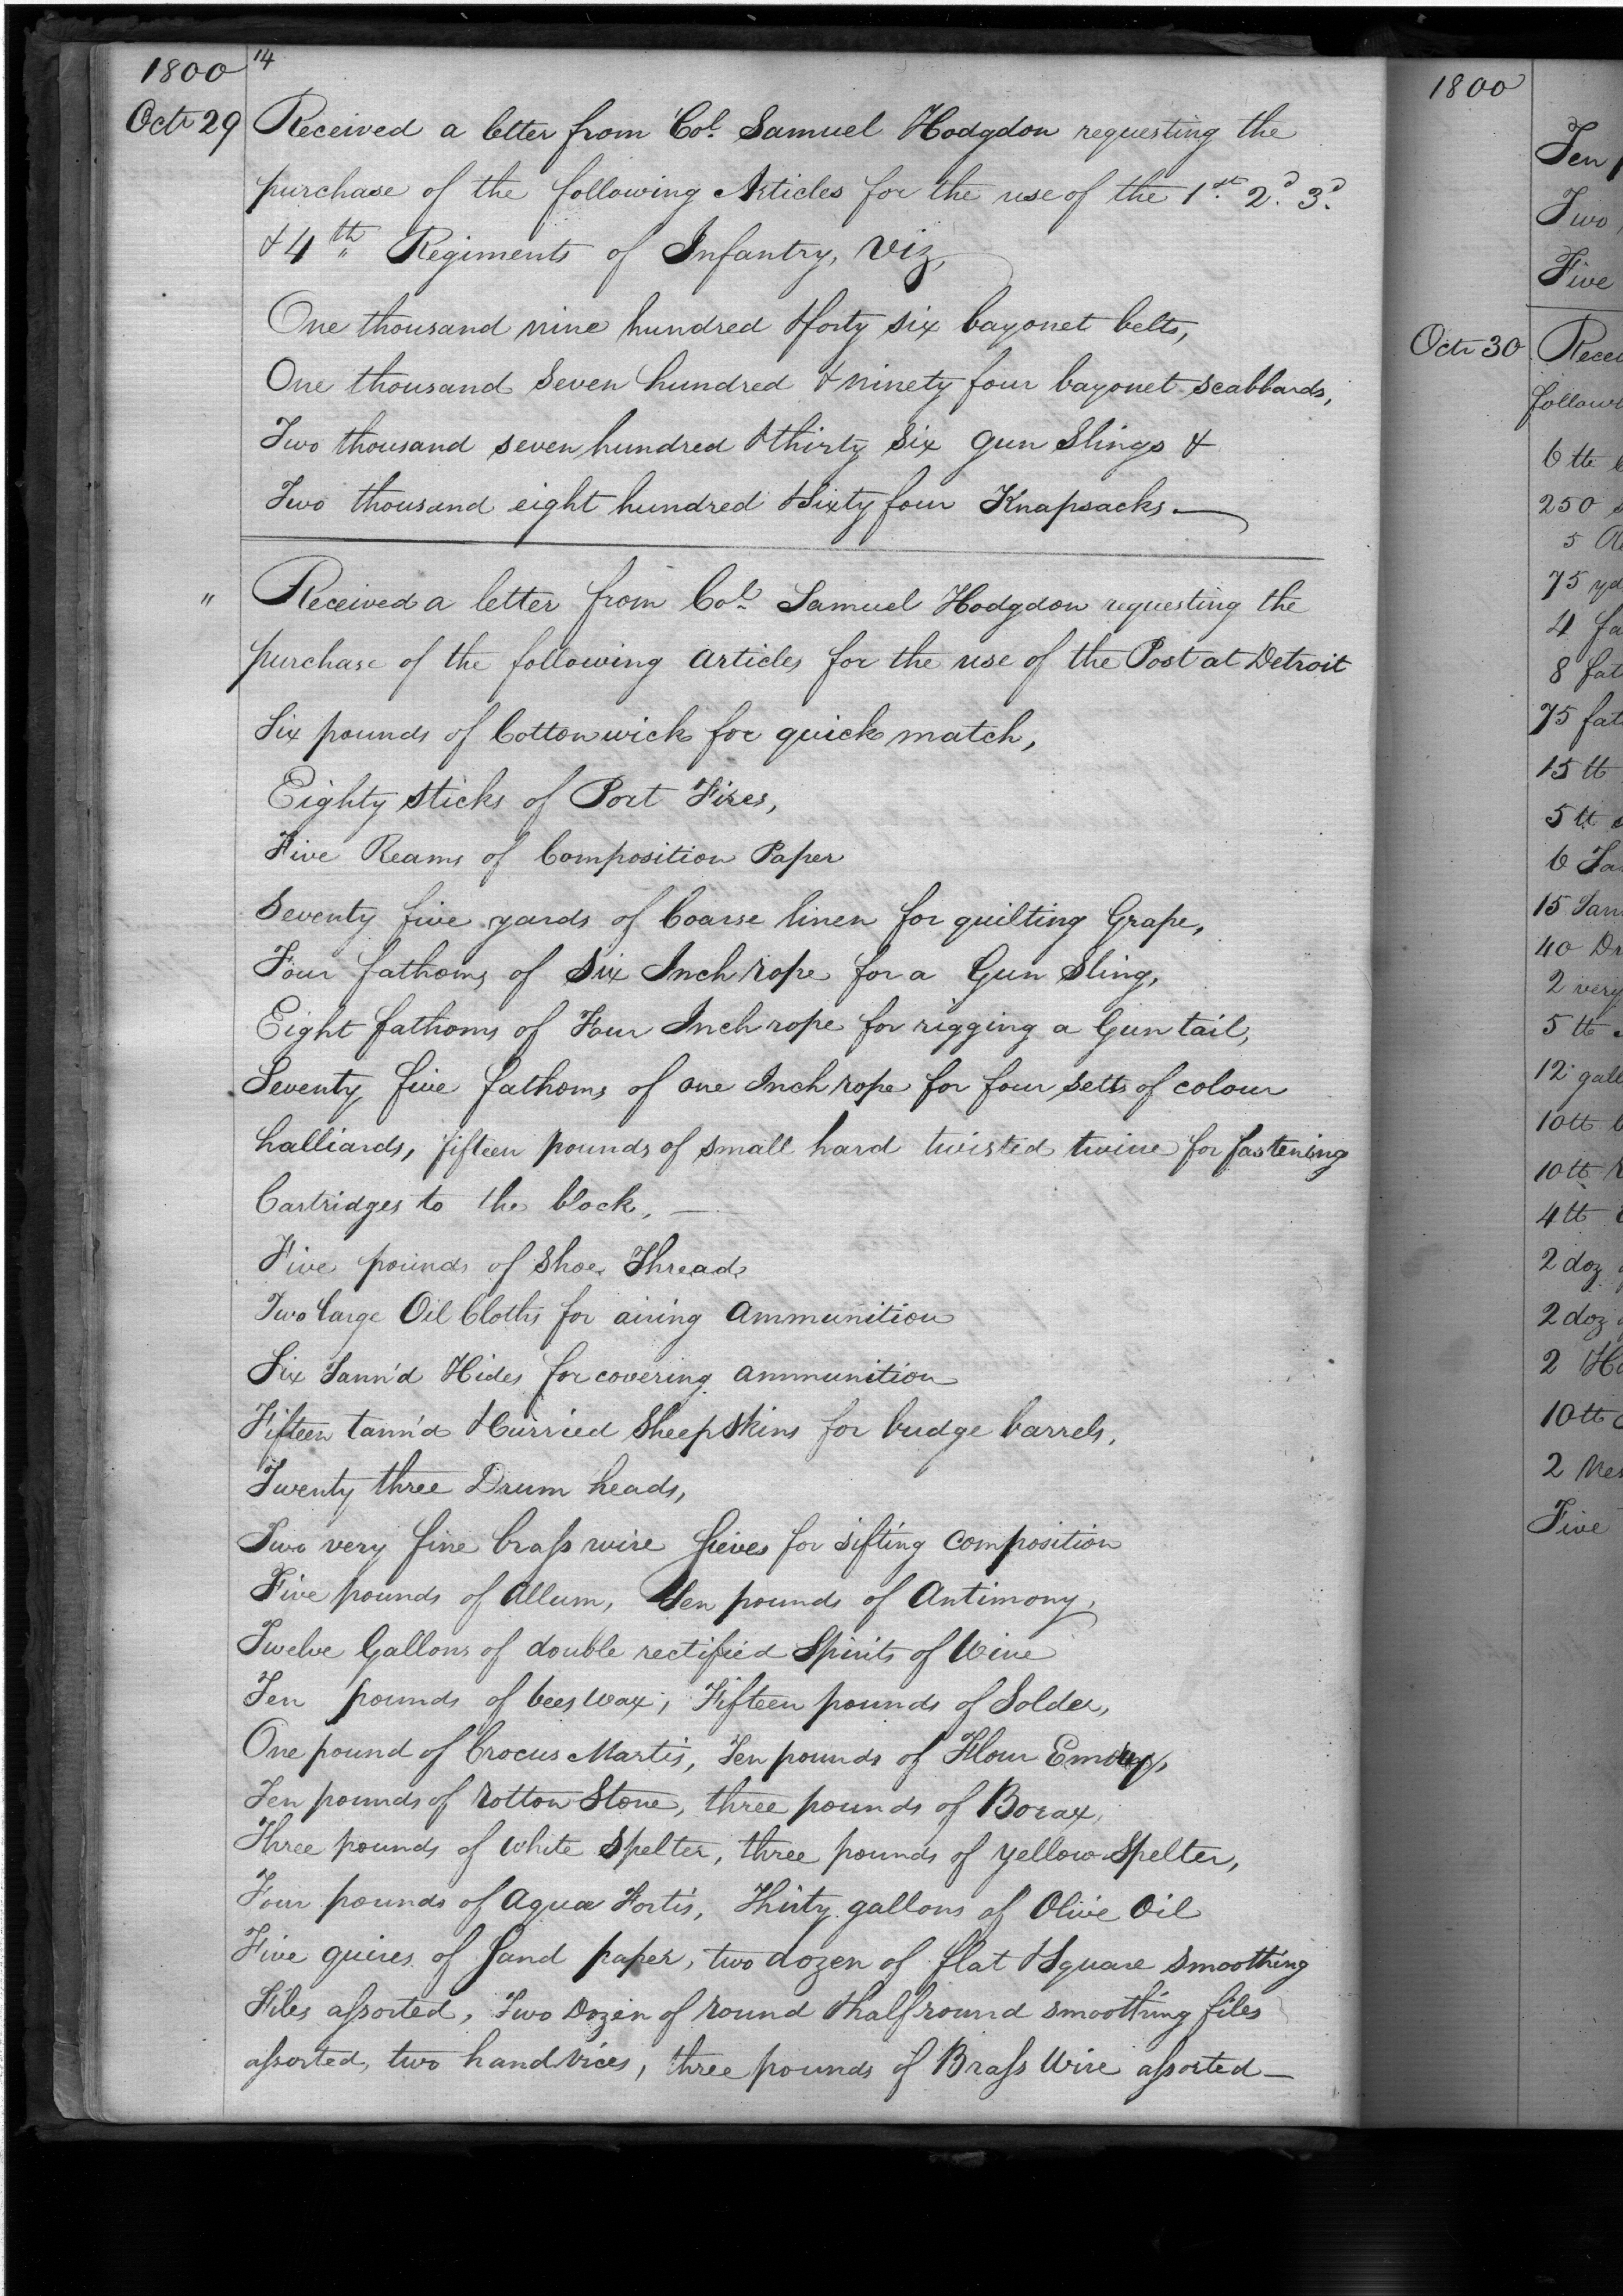 1800 14
Octr 29 Received a letter from Col. Samuel Hodgdon requesting the
purchase of the following Articles for the use of the 1st. 2d. 3d.
& 4th Regiments of Infantry, Viz,
One thousand nine hundred & forty six bayonet belts,
One thousand seven hundred & ninety four bayonet scabbards,
Two thousand seven hundred & thirty six Gun Slings &
Two thousand eight hundred & Sixty four Knapsacks. —
" Received a letter from Col. Samuel Hodgdon requesting the
purchase of the following articles for the use of the Post at Detroit
Six pounds of Cotton wick for quick match,
Eighty sticks of Port Fires,
Five Reams of Composition Paper
Seventy five yards of Coarse linen for quilting Grape,
Four fathoms of Six Inch rope for a Gun Sling,
Eight fathoms of Four Inch rope for rigging a Gun tail,
Seventy five fathoms of one Inch rope for four setts of colour
halliards, fifteen pounds of small hard twisted twine for fastening
Cartridges to the block, —
Five pounds of Shoe Thread
Two large Oil Cloths for airing ammunition
Six Tann'd Hides for covering ammunition
Fifteen tann'd & Curried Sheep Skins for budge barrels,
Twenty three Drum heads,
Two very fine brass wire Sieves for sifting composition
Five pounds of Allum, Ten pounds of Antimony,
Twelve Gallons of double rectified Spirits of Wine
Ten pounds of bees wax, Fifteen pounds of Solder,
One pound of Crocus Martis, Ten pounds of Flour Emery,
Ten pounds of Rotton Stone, three pounds of Borax,
Three pounds of White Spelter, three pounds of yellow Spelter,
Four pounds of Aqua Fortis, Thirty gallons of Olive Oil
Five quires of Sand paper, two dozen of flat & Square smoothing
Files assorted, Two Dozen of round & half round smoothing files
assorted, two hand vices, three pounds of Brass Wire assorted —
1800
Ten
Two
Five
Octr 30
6 tt
250
5
75 yd
4
8
75
15 tt
5 tt
6
15
40
2 very
5 tt
12
10 tt
10 tt
4 tt
2 doz
2 doz
2
10 tt
2
Five